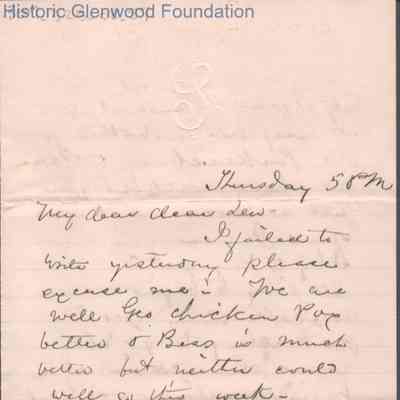 Historic Glenwood Foundation
Thursday 5 PM
My dear dear Lew.
I failed to
write yesterday please
excuse me. We are
well Geo. Chicken Pox
better & Bess is much
better but neither could
well go this week.